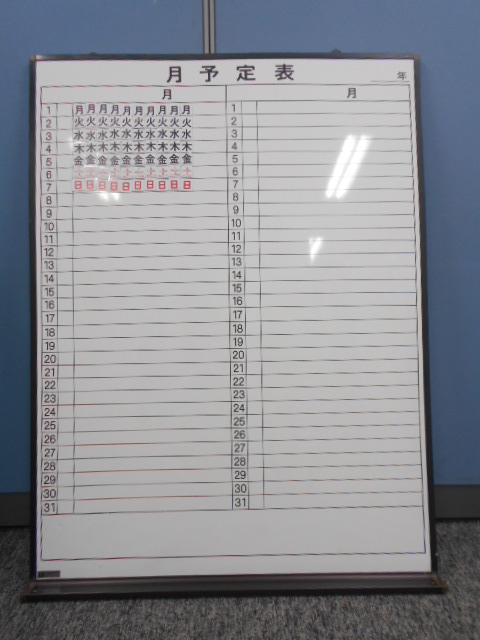 月予定表
年
月 月
1 月月月月月月月月月月 1
2 火火火火火火火火火火 2
3 水水水水水水水水水水 3
4 木木木木木木木木木木 4
5 金金金金金金金金金金 5
6 土土土土土土土土土土 6
7 日日日日日日日日日日 7
8 8
9 9
10 10
11 11
12 12
13 13
14 14
15 15
16 16
17 17
18 18
19 19
20 20
21 21
22 22
23 23
24 24
25 25
26 26
27 27
28 28
29 29
30 30
31 31